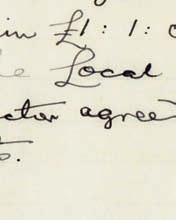 in £1:1:0
the Local
ctor agree
ts.